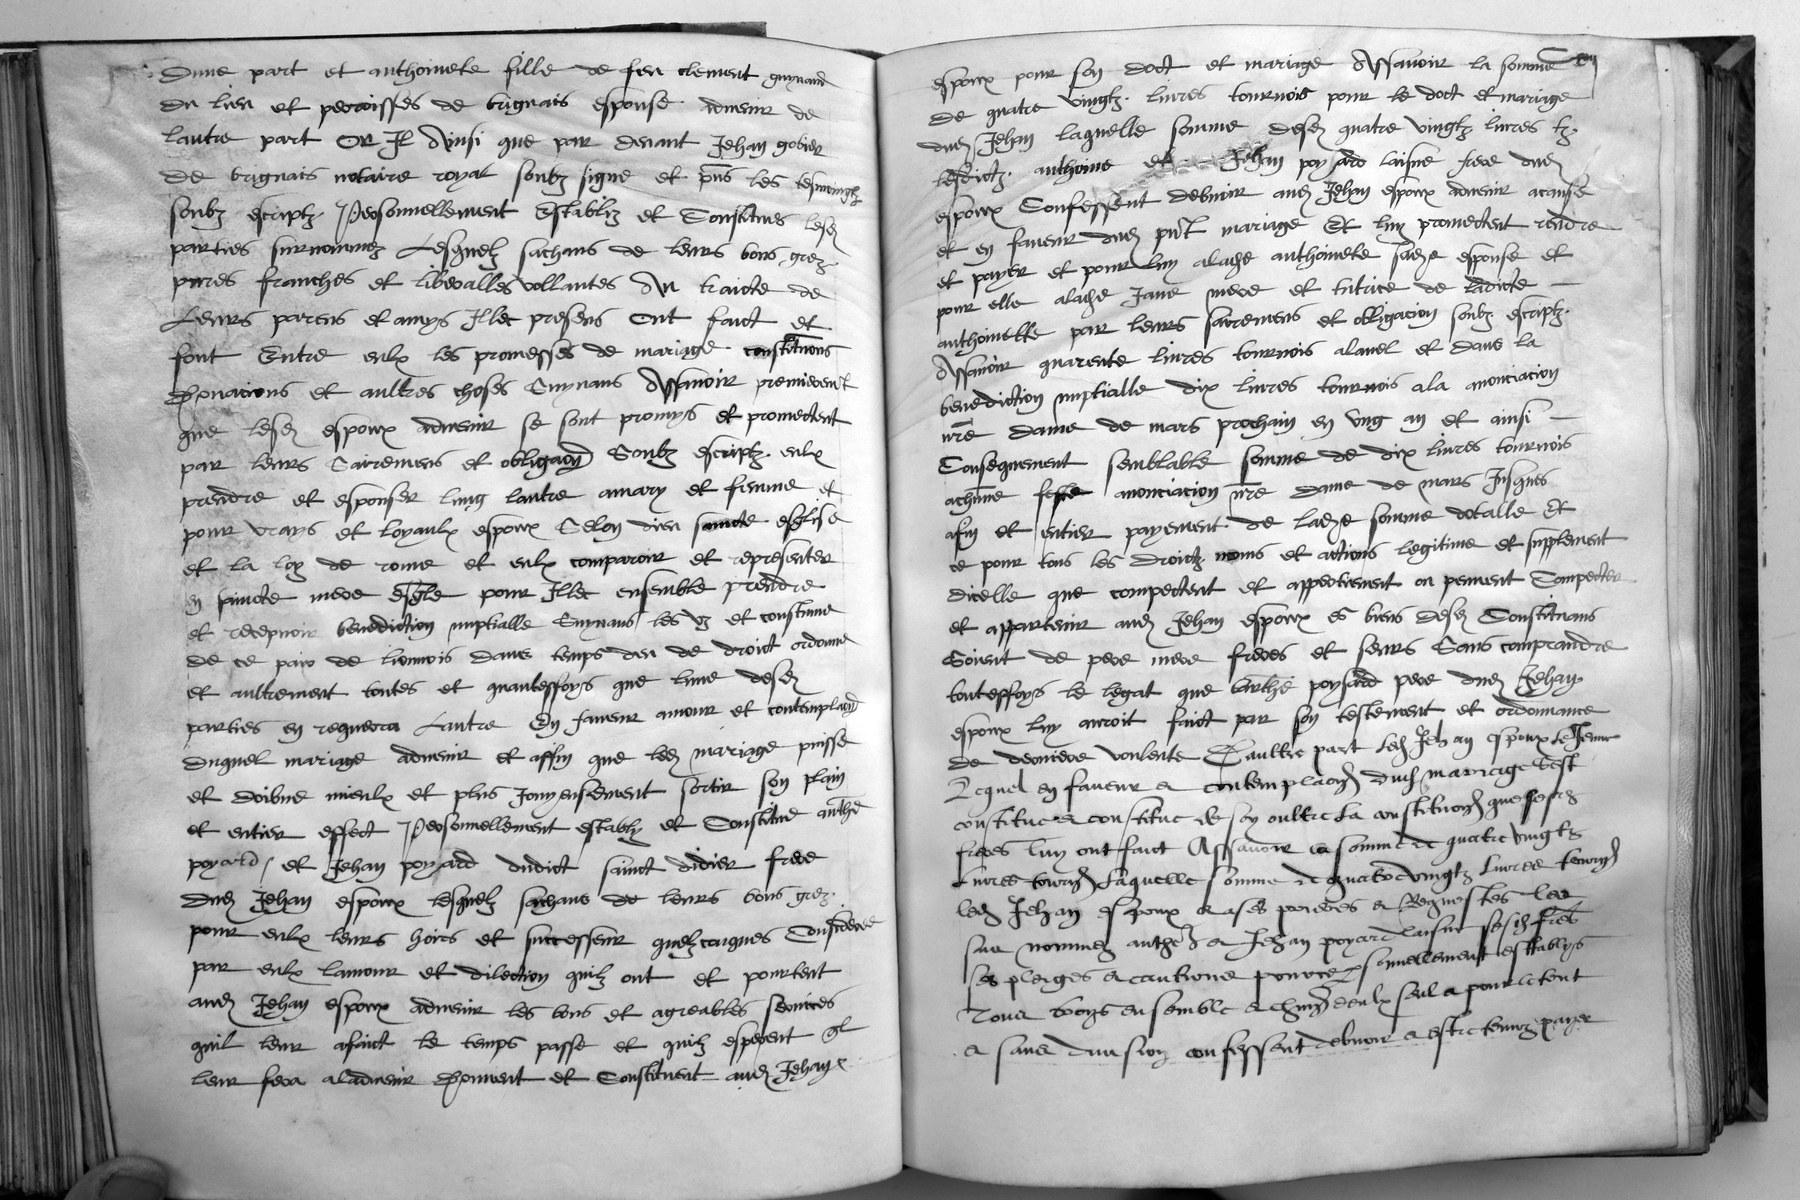 Dune part et anthoinete fille de feu clement guynand
du lieu et perroisses de brignais espouse advenir de
lautre part Or Il Ainsi que par devant Jehan gobier
de brignais notaire royal soubz signe et pns les tesmoingz
soubz escriptz Personnellement Establiz et Constitues lesd
parties surnommez Lesquelz sachans de leurs bons grez
pures franches et liberalles vollantes Au traicte de
Leurs parens et amys Illec presens Ont faict et
font Entre eulx les promesses de mariage constitutions
donacions et aultres choses Suyvans Assavoir premierent
que lesd espoux advenir se sont promys et promectent
par leurs Sairemens et obligaon Soubz escriptz eulx
prendre et espouser lung lautre amary et femme et
pour vrays et loyaulx espoux Selon dieu saincte esglise
et la loy de rome et eulx comparoir et representer
en saincte mere esgle pour Illec ensemble prendre
et recepvoir benediction nuptialle Suyvans les uz et constume
de ce pais de lionnois dans temps deu de droict ordonne
et aultrement toutes et quanteffoys que lune desd
parties en requerra Lautre En faveur amour et contemplaon
duquel mariage advenir et affin que led mariage puisse
et doibve mieulx et plus Joyeusement sortir son plain
et entier effect Personnellement establyz et Constitue anthe
poyard et Jehan poyard dudict sainct didier frere
dud Jehan espoux lesquelz sachans de leurs bons grez
pour eulx leurs hoirs et successeur quelzconques Considere
par eulx lamour et dilection quilz ont et pourtent
aud Jehan espoux advenir les bons et agreables services
quil leur afaict le temps passe et quilz esperent ql
leur fera aladvenir donnent et Constituent aud Jehan
espoux pour son doct et mariage Assavoir la somme
de quatre vingtz livres tournois pour le doct et mariage
dud Jehan laquelle somme desd quatre vingtz livres tz
lesdictz anthoine et Jehan poyard laisne frere dud
espoux Confessent debvoir aud Jehan espoux advenir acause
et en faveur dud pnt mariage Et luy promectent rendre
et payer et pour luy alad anthoinete sad espouse et
pour elle alad Jane mere et tutrice de ladicte
anthoinette par leurs sairemens et obligacion soubz escriptz
Assavoir quarente livres tournois alavel et dans la
benediction nuptialle dix livres tournois ala anonciacion
nre dame de mars prochain en ung an et ainsi
Consequement semblable somme de dix livres tournois
achune feste anonciacion nre dame de mars Jusques
afin et entier payement de lad somme totalle Et
ce pour tous les droictz noms et actions legitime et supplement
dicelle que compectent et appertienent ou peuvent Compecter
et appartenir aud Jehan espoux es biens desd Constituans
Soient de pere mere freres et seurs Sans comprandre
touteffoys le legat que barthe poyard pere dud Jehan
espoux luy auroit faict par son testement et ordonnance
de derniere voulente Daultre part Led Jehan espoux le Jeune
Lequel en faveur et contemplacion dud mariage Sest
constitue et constitue de soy oultre La constitution que sesd
freres luy ont faict Assavoir la somme de quatre vingtz
Livres tourn Laquelle somme de quatre vingtz Livres tourn
led Jehan espoux et a ses prieres et Requestes les
sus nommez anthe et Jehan poyard laisne sesd freres
ses pleiges et cautions pource personnellement establys
Tous troys ensemble et chun deulx seul et pour le tout
et sans division confessent debvoir et estre tenuz payer